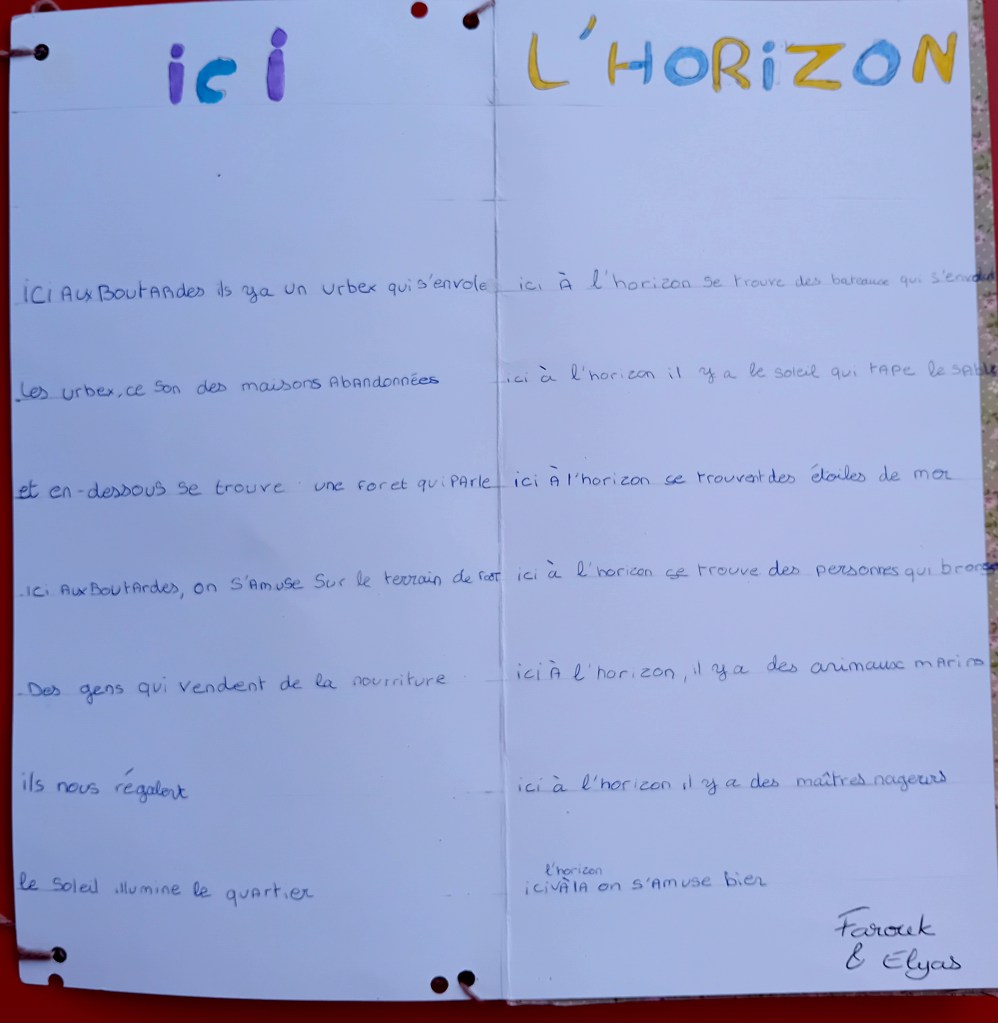 ici
ICI AUX BOUTARdes ils ya un urbex qui s'envole
Les urbex, ce son des maisons AbANdonnées
et en-dessous se trouve une foret qui PArle
ici AUX BOUTArdes, on s'Amuse sur le terrain de foot
Des gens qui vendent de la nourriture
ils nous régalent
le soleil illumine le quArtier
L'HORiZON
ici À l'horizon se trouve des bateaux qui s'envolent
ici à l'horizon il y a le soleil qui tAPe le sAble
ici À l'horizon se trouvent des étoiles de mer
ici à l'horizon se trouve des personnes qui bronze
ici À l'horizon, il y a des animaux mArins
ici à l'horizon il y a des maîtres nageurs
l'horizon
ici À on s'Amuse bien
Farouk
& Elyas